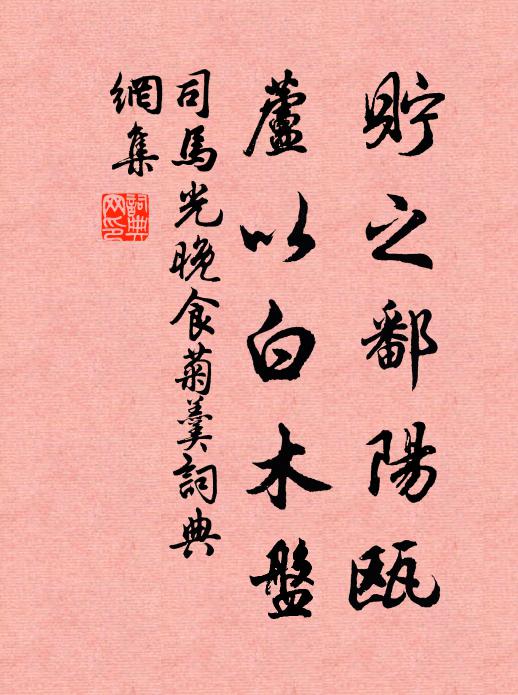 貯之鄱陽甌
蘆以白木盤
司馬光晚食菊羹詞典
網集
詞典
网印